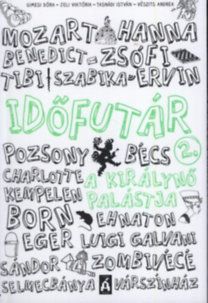 GIMESI DÓRA - ZELI VIKTÓRIA - TASNÁDI ISTVÁN - VÉSZITS ANDREA
MOZART HANNA
BENEDICT-ZSÓFI
TIBI SZABIKA-ERVIN
IDŐFUTÁR
POZSONY BÉCS 2.
CHARLOTTE A KIRÁLYNŐ
KEMPELEN PALÁSTJA
BORN EHNATON
EGER LUIGI GALVANI
SÁNDOR ZOMBIVÉCÉ
SELMECBÁNYA VÁRSZÍNHÁZ